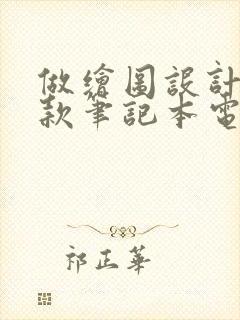 做繪圖設計
款筆記本電
祁正華